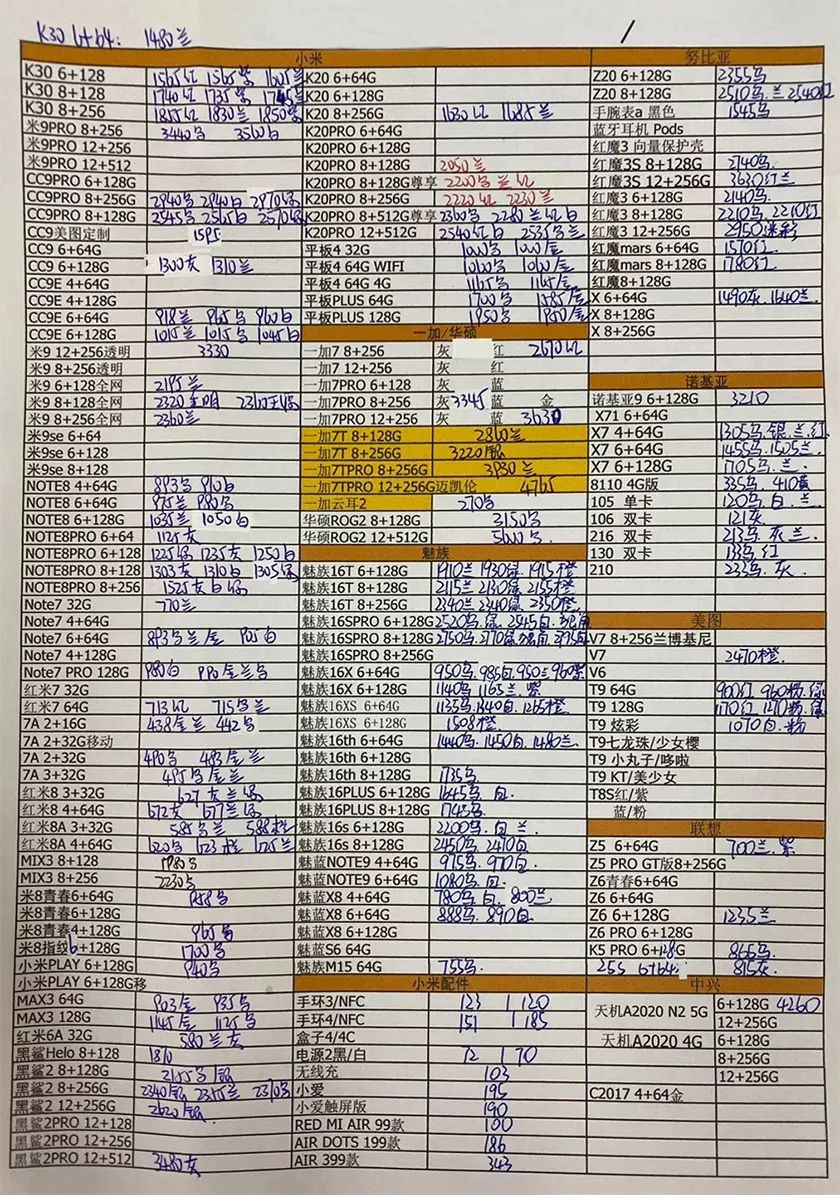 K30 6+64: 1480兰
小米
K30 6+128 1565红 1565紫 1605兰
K30 8+128 1740红 1735紫 1745兰
K30 8+256 1855红 1830兰 1850紫
米9PRO 8+256 3440 3560白
米9PRO 12+256
米9PRO 12+512
CC9PRO 6+128G
CC9PRO 8+256G 2940 2940白 2970绿
CC9PRO 8+128G 2545 2565白 2570绿
CC9美图定制 1595
CC9 6+64G
CC9 6+128G 1300灰 1310兰
CC9E 4+64G
CC9E 4+128G
CC9E 6+64G 918兰 965 960白
CC9E 6+128G 1015兰 1015 1045白
米9 12+256透明 3330
米9 8+256透明
米9 6+128全网 2195兰
米9 8+128全网 2320
米9 8+256全网 2360兰
米9se 6+64
米9se 6+128
米9se 8+128
NOTE8 4+64G 893 910白
NOTE8 6+64G 975兰 980
NOTE8 6+128G 1035兰 1050白
NOTE8PRO 6+64 1125灰
NOTE8PRO 6+128 1225绿 1235灰 1250白
NOTE8PRO 8+128 1303灰 1310白 1305绿
NOTE8PRO 8+256 1525灰白绿
Note7 32G 770兰
Note7 4+64G
Note7 6+64G 893 兰 905白
Note7 4+128G
Note7 PRO 128G 980白 990
红米7 32G
红米7 64G 713红 715 兰
7A 2+16G 438 兰 442
7A 2+32G移动
7A 2+32G 490 483 兰
7A 3+32G 495 兰
红米8 3+32G 627灰兰绿
红米8 4+64G 672灰 677兰绿
红米8A 3+32G 585 兰 588
红米8A 4+64G 620 623 625兰
MIX3 8+128 1980
MIX3 8+256 2230
米8青春6+64G 958
米8青春6+128G
米8青春4+128G 965
米8指纹6+128G 1700
小米PLAY 6+128G 940
小米PLAY 6+128G移
MAX3 64G 903 935
MAX3 128G 1145 1125
红米6A 32G 580兰灰
黑鲨Helo 8+128 1870
黑鲨2 8+128G 2155 银
黑鲨2 8+256G 2340银 2355兰 2370
黑鲨2 12+256G 2620银
黑鲨2PRO 12+128
黑鲨2PRO 12+256
黑鲨2PRO 12+512 3480灰
K20 6+64G
K20 6+128G
K20 8+256G 1630红 1685兰
K20PRO 6+64G
K20PRO 6+128G
K20PRO 8+128G 2050兰
K20PRO 8+128G尊享 2200 兰红
K20PRO 8+256G 2220红 2230兰
K20PRO 8+512G尊享 2300 2280兰红白
K20PRO 12+512G 2540红白 2535 兰
平板4 32G 1000 1000金
平板4 64G WIFI 1060 1060金
平板4 64G 4G 1165 1165金
平板PLUS 64G 1700 1585金
平板PLUS 128G 1850 1850金
一加/华硕
一加7 8+256 灰 红 2670红
一加7 12+256 灰 红
一加7PRO 6+128 灰 蓝
一加7PRO 8+256 灰3345 蓝 金
一加7PRO 12+256 灰 蓝 3630
一加7T 8+128G 2860兰
一加7T 8+256G 3220银
一加7TPRO 8+256G 3930兰
一加7TPRO 12+256G迈凯伦 4765
一加云耳2 270
华硕ROG2 8+128G 3150
华硕ROG2 12+512G 5600
魅族
魅族16T 6+128G 1910兰 1930绿 1915橙
魅族16T 8+128G 2115兰 2130绿 2155橙
魅族16T 8+256G 2340兰 2340绿 2350橙
魅族16SPRO 6+128G 2520 绿 2545白
魅族16SPRO 8+128G 2750 2770绿
魅族16SPRO 8+256G
魅族16X 6+64G 950 985白 950兰 960紫
魅族16X 6+128G 1140 1165兰.紫
魅族16XS 6+64G 1135 1340白 1265橙
魅族16XS 6+128G 1508橙
魅族16th 6+64G 1440 1450白 1480兰
魅族16th 6+128G
魅族16th 8+128G 1735
魅族16PLUS 6+128G 1645 白
魅族16PLUS 8+128G 1745
魅族16s 6+128G 2200 白 兰
魅族16s 8+128G 2450 2470白
魅蓝NOTE9 4+64G 975 970白
魅蓝NOTE9 6+64G 1080 白
魅蓝X8 4+64G 780 白 800兰
魅蓝X8 6+64G 888 890白
魅蓝X8 6+128G
魅蓝S6 64G
魅族M15 64G 755
小米配件
手环3/NFC 123 | 120
手环4/NFC 151 | 185
盒子4/4C
电源2黑/白 72 | 70
无线充 103
小爱 195
小爱触屏版 190
RED MI AIR 99款 100
AIR DOTS 199款 186
AIR 399款 343
努比亚
Z20 6+128G 2355
Z20 8+128G 2510 兰 2540红
手腕表a 黑色 1545
蓝牙耳机 Pods
红魔3 向量保护壳
红魔3S 8+128G 2740
红魔3S 12+256G 3630红兰
红魔3 6+128G 2140
红魔3 8+128G 2210 2210红
红魔3 12+256G 2950迷彩
红魔mars 6+64G 1570红
红魔mars 8+128G 1780红
红魔8+128G
X 6+64G 1490灰 1640兰
X 8+128G
X 8+256G
诺基亚
诺基亚9 6+128G 3210
X71 6+64G
X7 4+64G 1305 银.兰.红
X7 6+64G 1455 1505兰
X7 6+128G 1705 兰
8110 4G版 335 410黄
105 单卡 120 白.兰
106 双卡 121灰
216 双卡 213 灰兰
130 双卡 133 红
210 235 灰
美图
V7 8+256兰博基尼
V7 2470橙
V6
T9 64G 900红 960粉.绿
T9 128G 1170红 1270粉.绿
T9 炫彩 1070白.粉
T9七龙珠/少女樱
T9 小丸子/哆啦
T9 KT/美少女
T8S红/紫
蓝/粉
联想
Z5 6+64G 700兰.紫
Z5 PRO GT版8+256G
Z6青春6+64G
Z6 6+64G
Z6 6+128G 1255兰
Z6 PRO 6+128G
K5 PRO 6+128G 865
Z5S 6+64 815灰
中兴
天机A2020 N2 5G 6+128G 4260
12+256G
天机A2020 4G 6+128G
8+256G
12+256G
C2017 4+64金